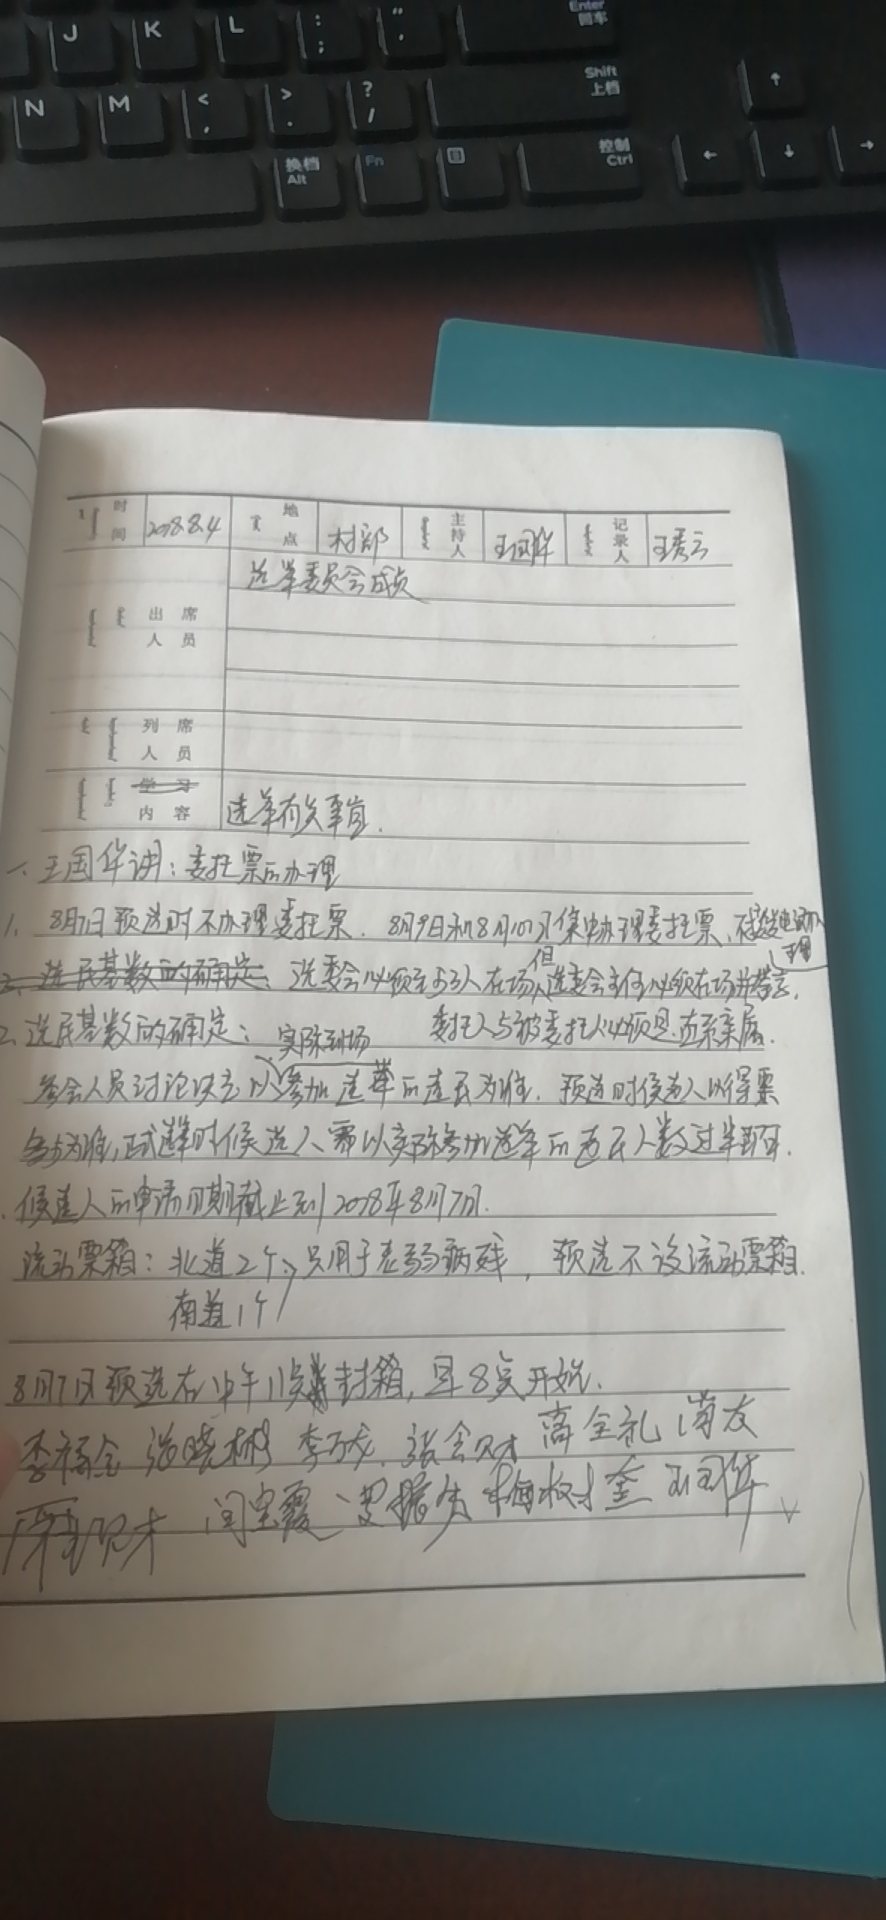 J K L : ; " ' Enter 回车
N M < , > . ? / Shift 上档 ↑
换档 Alt Fn 控制 Ctrl ← ↓ →
时间 2018.8.4 地点 村部 主持人 王国华 记录人 王秀云
出席人员 选举委员会成员
列席人员
学习内容 选举有关事宜.
一、王国华讲: 委托票的办理
1. 8月7日预选时不办理委托票. 8月9日和8月10日集中办理委托票、
办理
2、选民基数的确定: 选委会必须至少3人在场但选委会主任必须在场并签字.
2、选民基数的确定: 实际到场 委托人与被委托人必须是直系亲属.
参会人员讨论决定以参加选举的选民为准. 预选时候选人以得票
多少为准, 正式选举时候选人需以实际参加选举的选民人数过半
候选人的申请日期截止到2018年8月7日.
流动票箱: 北道2个, 只用于老弱病残, 预选不设流动票箱.
南道1个
8月7日预选在中午11点封箱, 早8点开始.
李福全 张晓彬 李万成. 张会财 高全礼
闫宝霞 梅树金 王国华